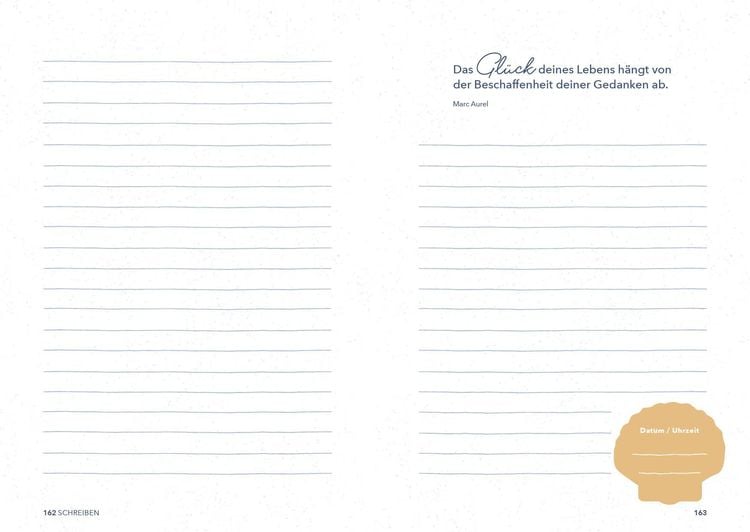 Das Glück deines Lebens hängt von
der Beschaffenheit deiner Gedanken ab.
Marc Aurel
Datum / Uhrzeit
162 SCHREIBEN
163